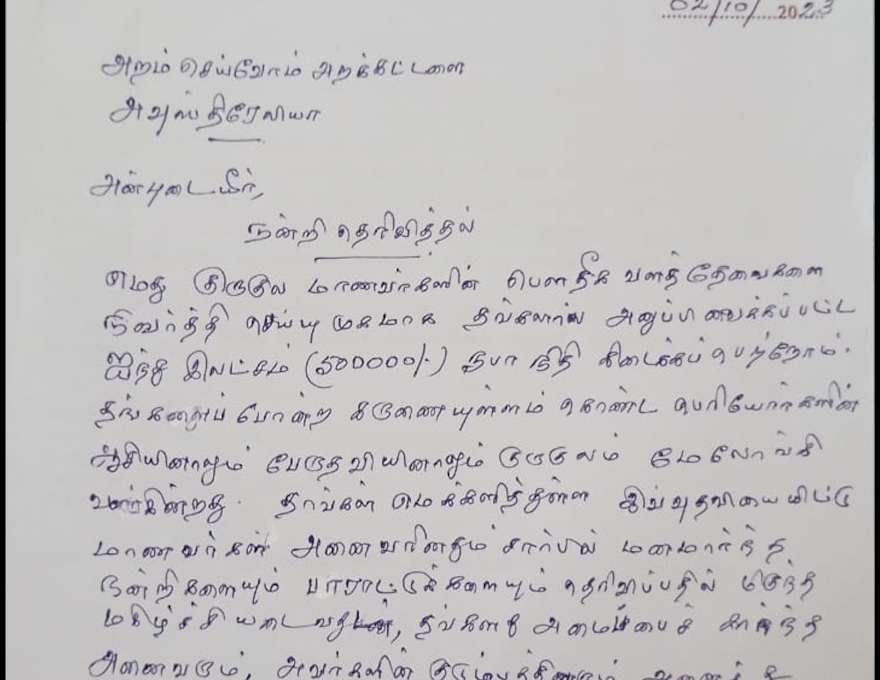 02/10/2023
அறம் செய்வோம் அறக்கட்டளை
அவுஸ்திரேலியா
அன்புடையீர்,
நன்றி தெரிவித்தல்
எமது குருகுல மாணவர்களின் பௌதீக வளத் தேவைகளை
நிவர்த்தி செய்யு முகமாக தங்களால் அனுப்பிவைக்கப்பட்ட
ஐந்து இலட்சம் (500000/-) ரூபா நிதி கிடைக்கப் பெற்றோம்.
தங்களைப் போன்ற கருணையுள்ளம் கொண்ட பெரியோர்களின்
ஆசியினாலும் பேருதவியினாலும் குருகுலம் மேலோங்கி
வளர்கின்றது. தாங்கள் எமக்களித்துள்ள இவ்வுதவியையிட்டு
மாணவர்கள் அனைவரினதும் சார்பில் மனமார்ந்த
நன்றிகளையும் பாராட்டுக்களையும் தெரிவிப்பதில் மிகுந்த
மகிழ்ச்சியடைவதுடன், தங்களது அமைப்பைச் சார்ந்த
அனைவரும், அவர்களின் குடும்பத்தினரும்